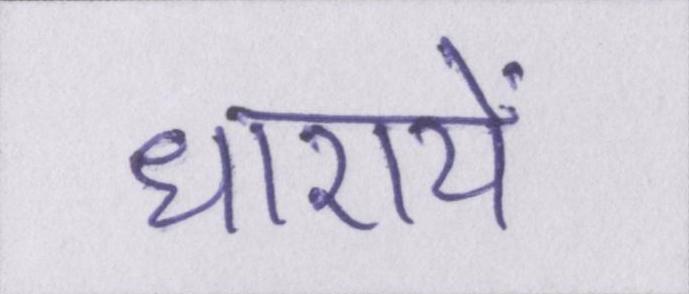 धारायें